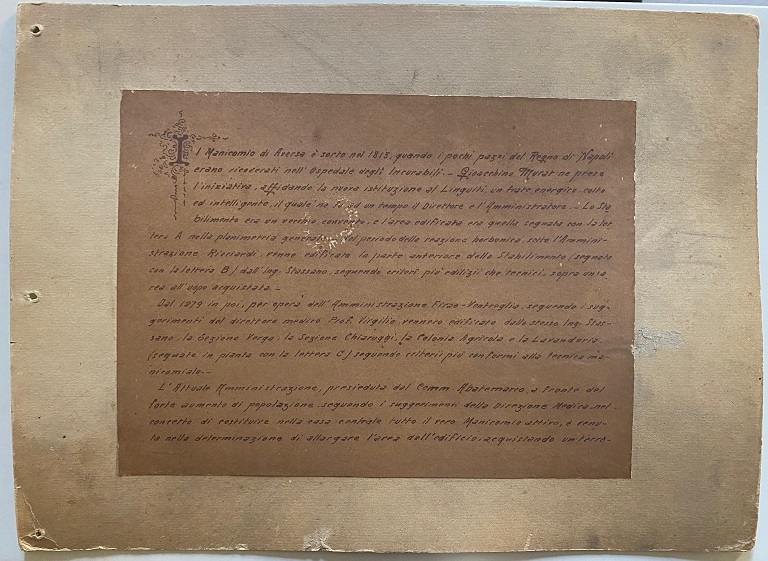 Il Manicomio di Aversa è sorto nel 1813, quando i pochi pazzi del Regno di Napoli
erano ricoverati nell'Ospedale degli Incurabili. - Gioacchino Murat ne prese
l'iniziativa, affidando la nuova istituzione al Linguiti, un frate energico, colto
ed intelligente, il quale ne fu ad un tempo il Direttore e l'Amministratore. - Lo Sta-
bilimento era un vecchio convento, e l'area edificata era quella segnata con la let-
tera A nella planimetria generale. Nel periodo della reazione borbonica, sotto l'Ammini-
strazione Ricciardi, venne edificata la parte anteriore dello Stabilimento (segnata
con la lettera B) dall'Ing. Stassano, seguendo criteri più edilizii che tecnici, sopra un'a-
rea all'uopo acquistata. -
Dal 1879 in poi, per opera dell'Amministrazione Virgilio, seguendo i sug-
gerimenti del direttore medico Prof. Virgilio, vennero edificate dallo stesso Ing. Stas-
sano, la Sezione Verga, la Sezione Chiarugi, la Colonia Agricola e la Lavanderia
(segnate in pianta con la lettera C) seguendo criterii più conformi alla tecnica ma-
nicomiale. -
L'Attuale Amministrazione, presieduta dal Comm. Abatemarco, a fronte del
forte aumento di popolazione, seguendo i suggerimenti della Direzione Medica, nel
concetto di costituire nella casa centrale tutto il vero Manicomio attivo, è venu-
ta nella determinazione di allargare l'area dell'edificio, acquistando un terre-